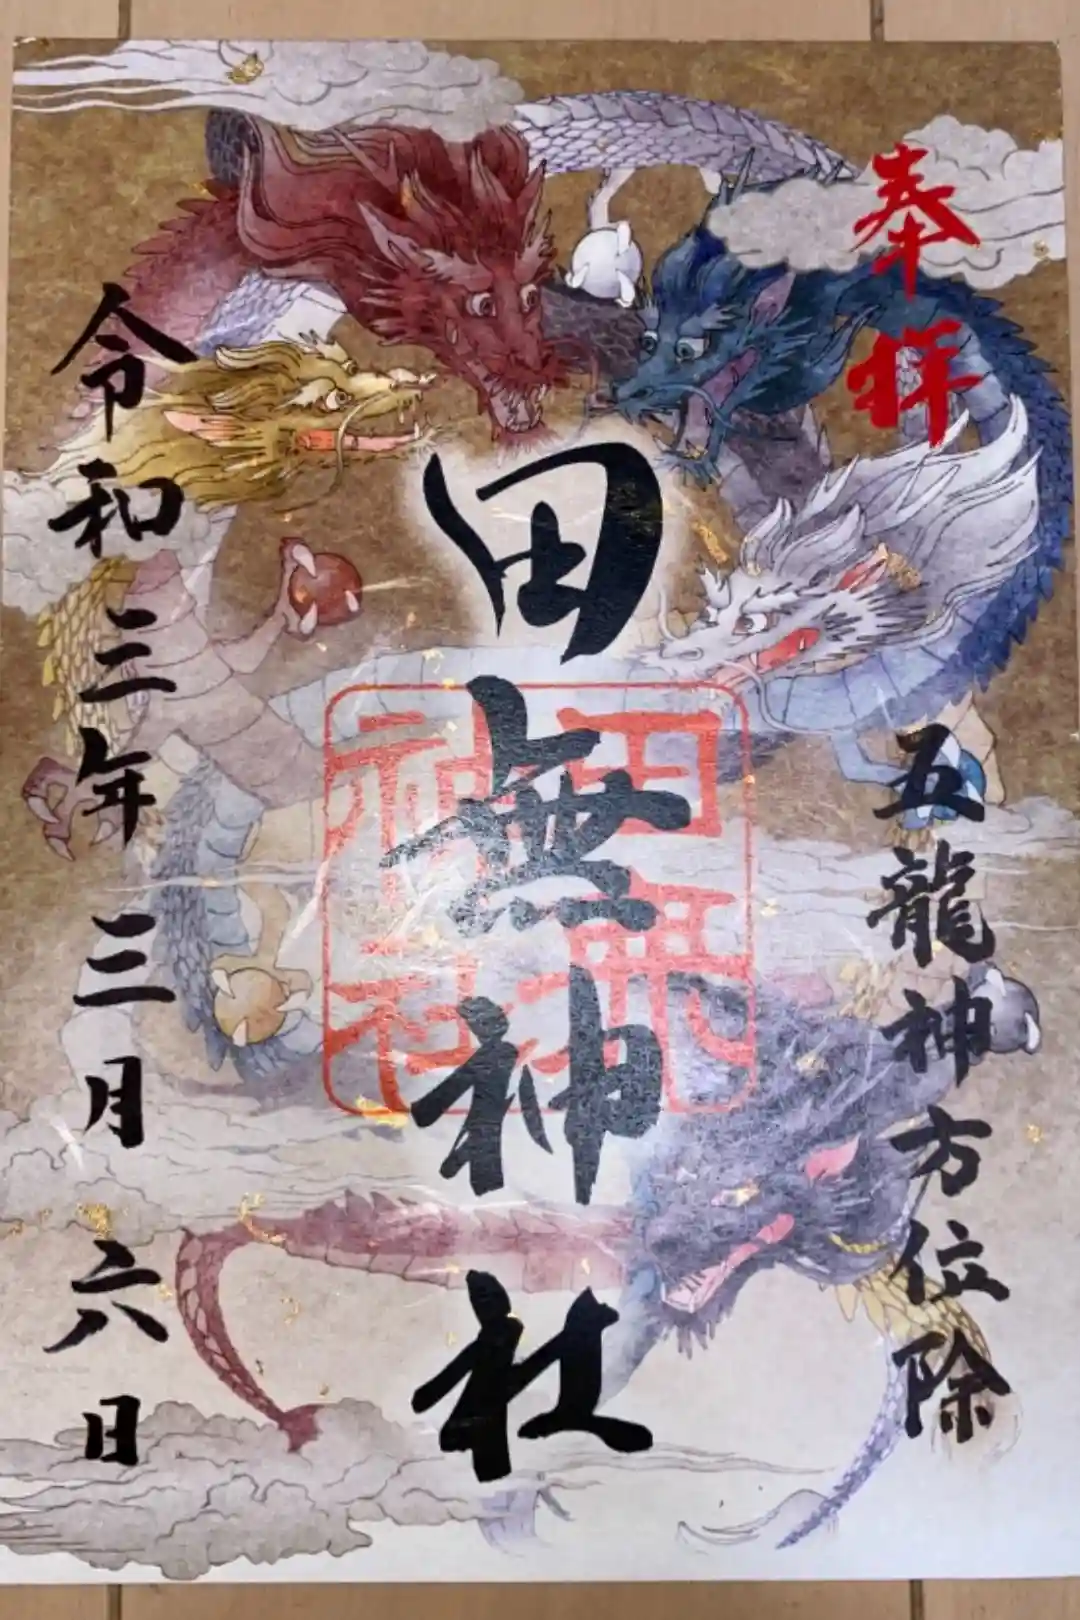 奉拝
五龍神方位除
田無神社
田無
神社
令和三年三月六日